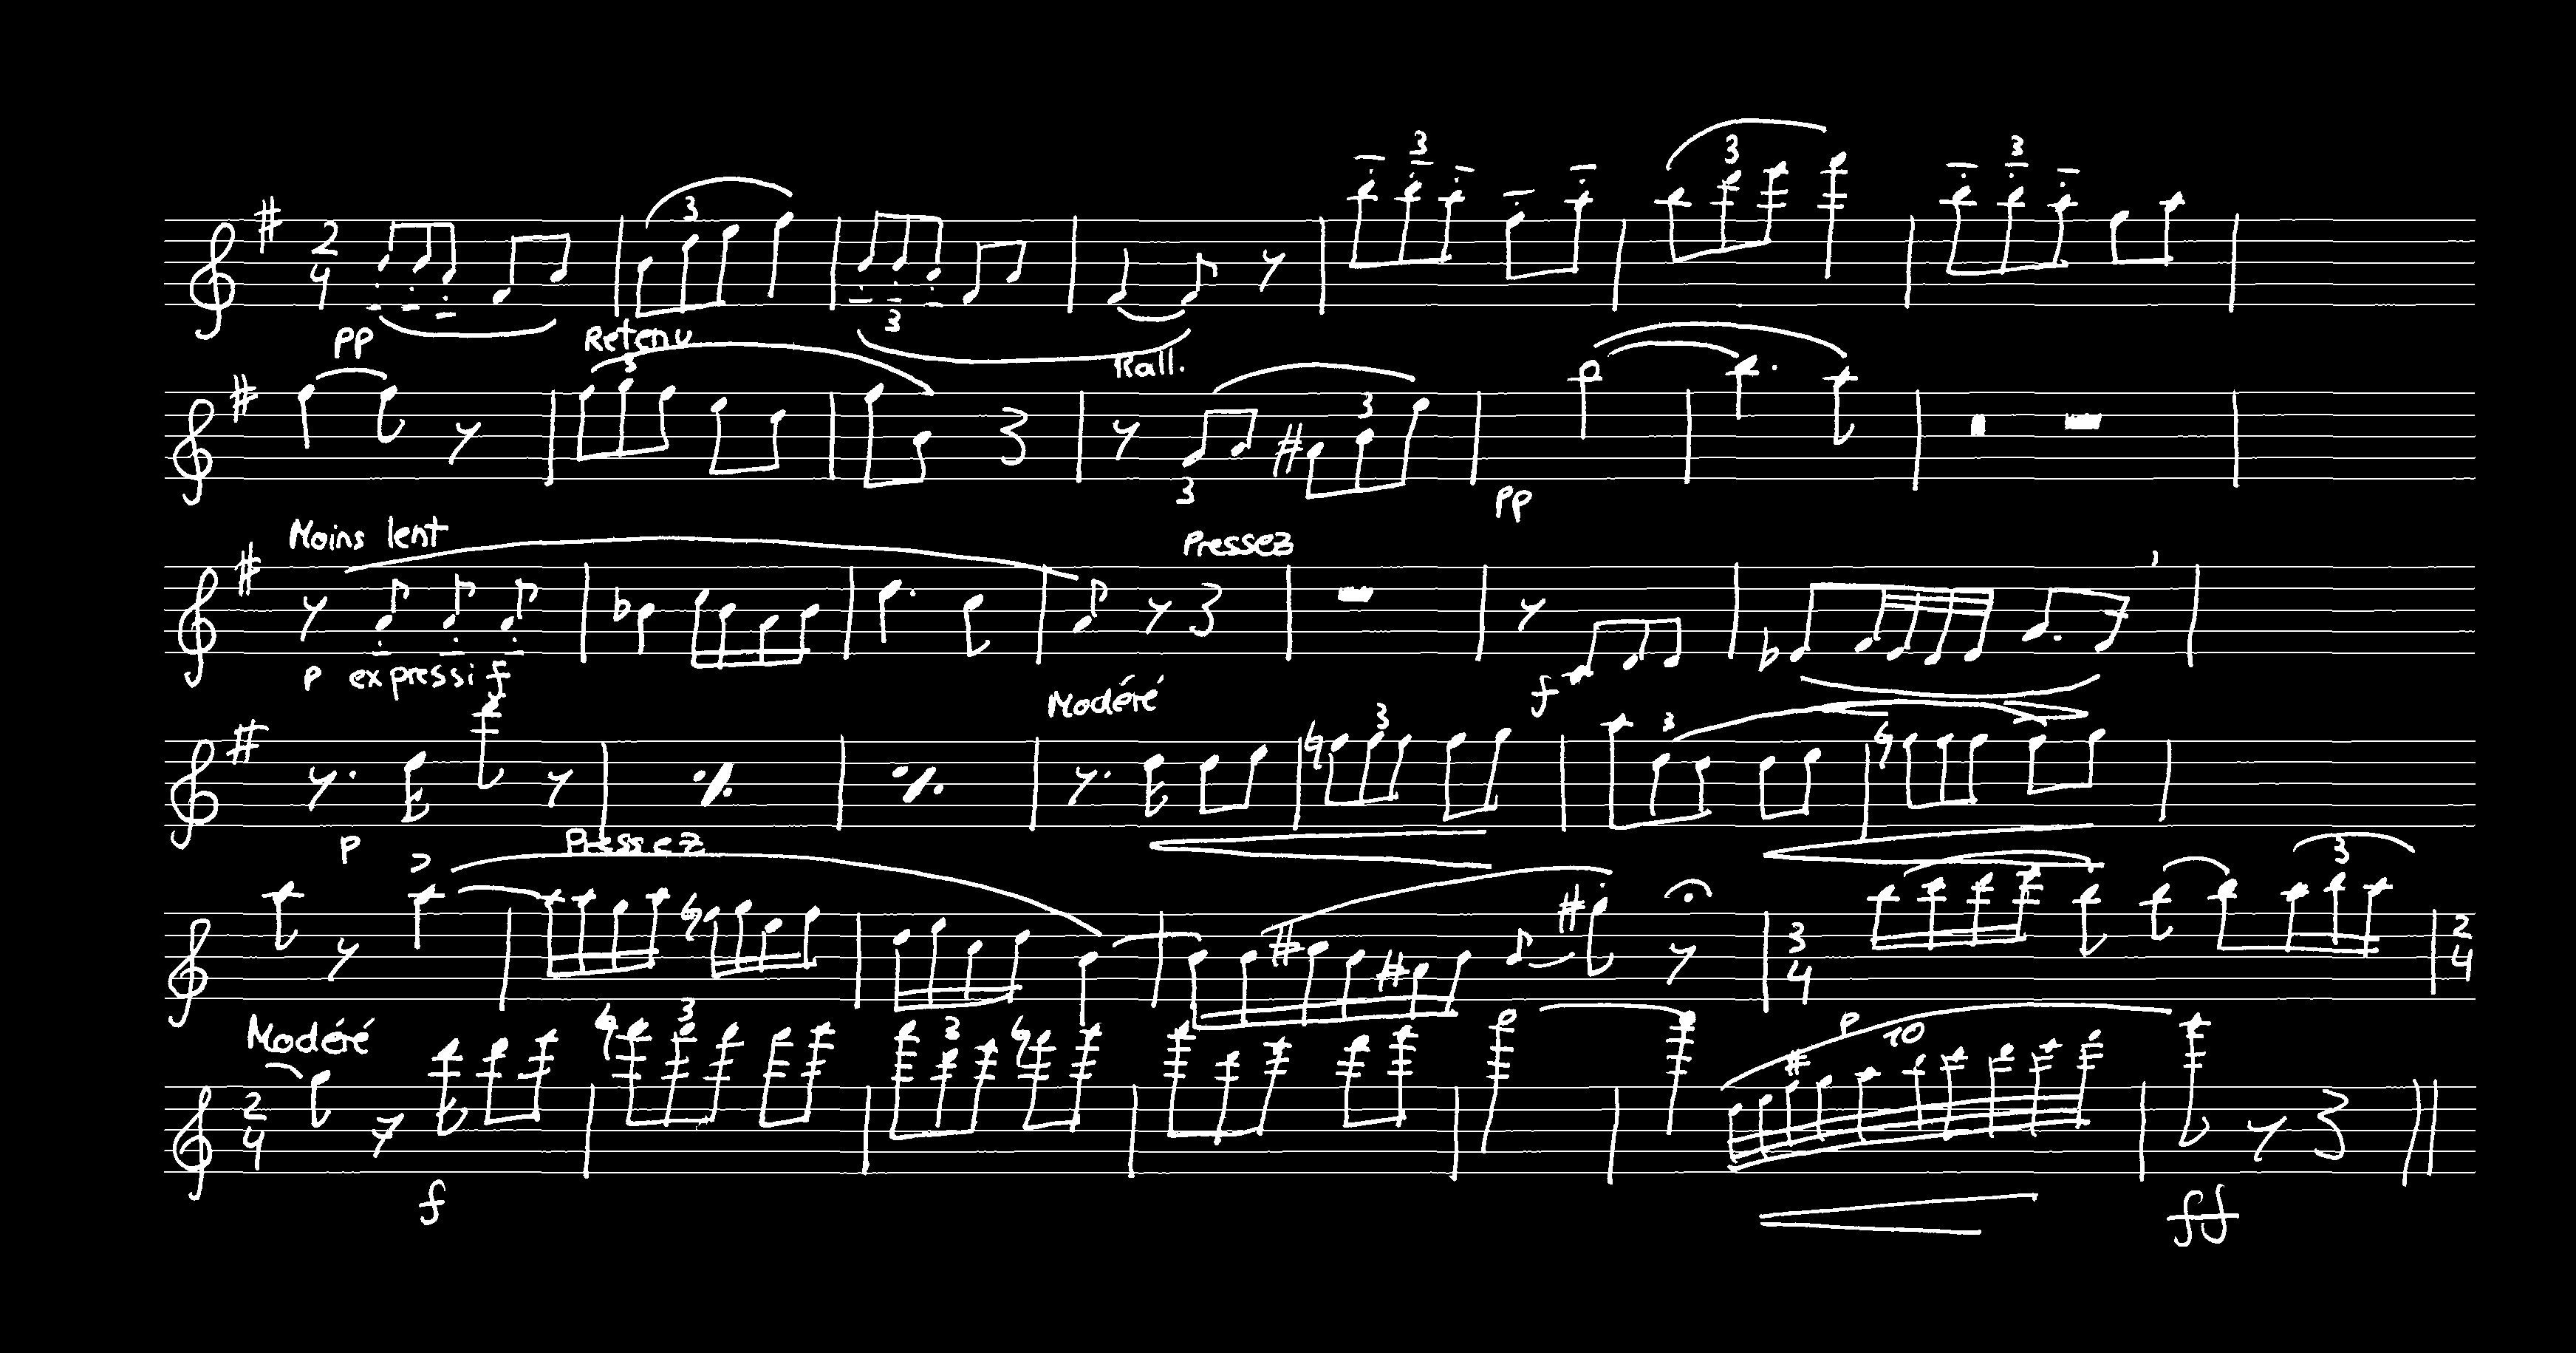 3 3 3
2 4
3
pp Retenu Rall.
3 3
3
pp
Moins lent Pressez
p expressif f
Modéré 3 3
p Pressez
3
3 4 2 4
Modéré 3 3 p 10
2 4
f ff